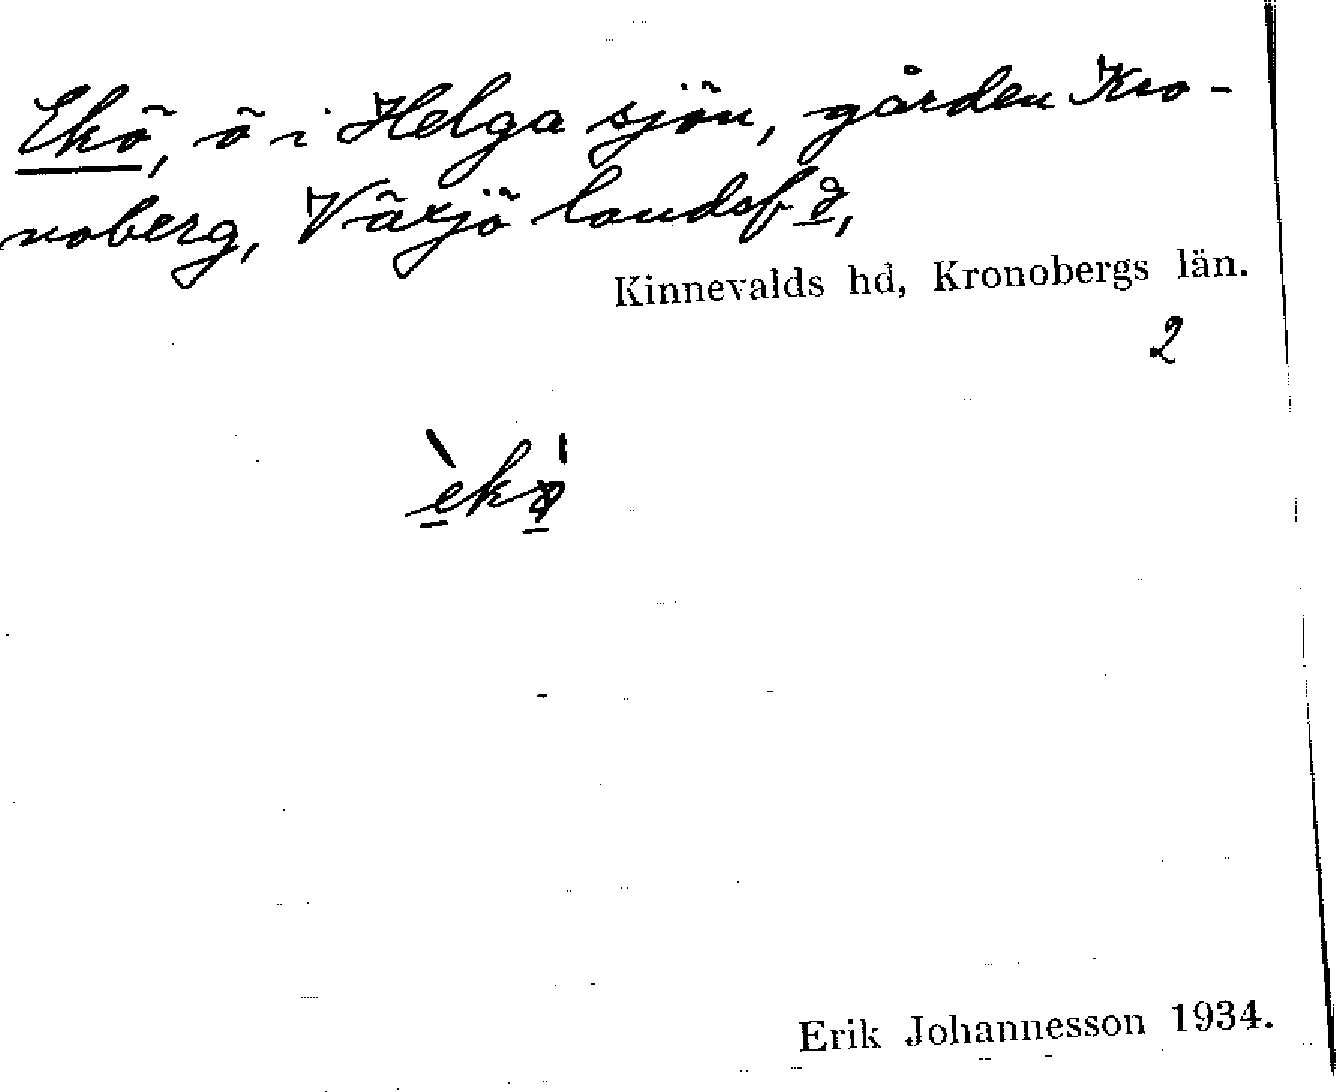 Ekö, ö i Helga sjön, gården Kro-
noberg, Växjö landsfd,
Kinnevalds hd, Kronobergs län.
2
Erik Johannesson 1934.